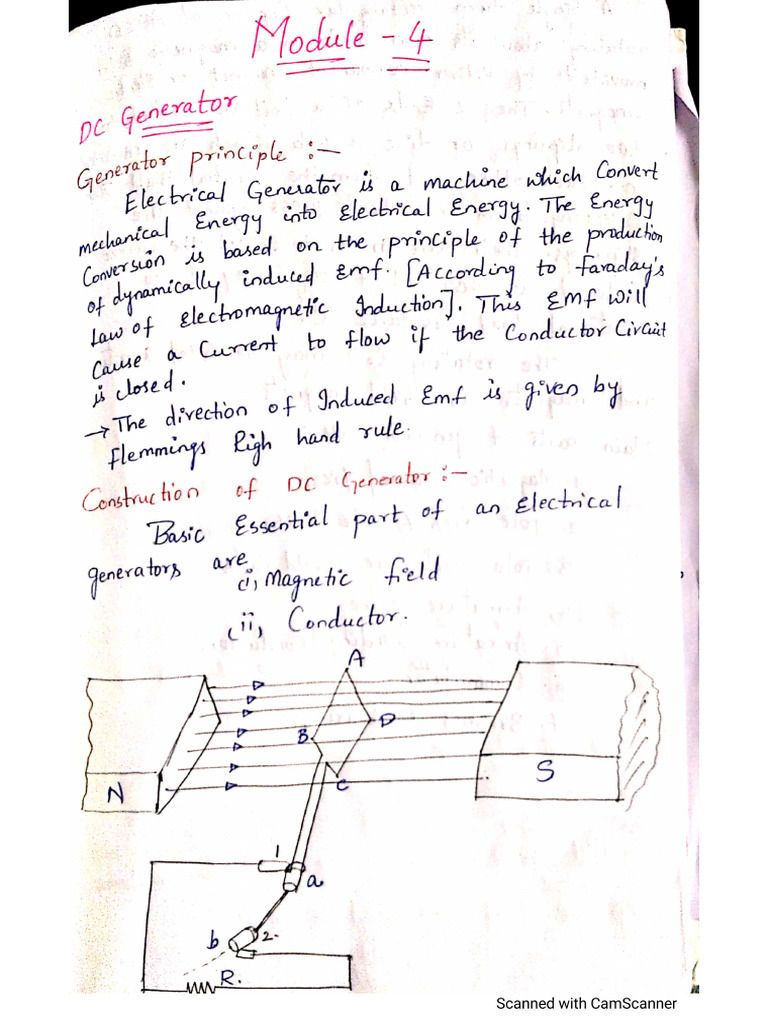 Module - 4
DC Generator
Generator principle :-
Electrical Generator is a machine which Convert
mechanical Energy into Electrical Energy. The Energy
Conversion is based on the principle of the production
of dynamically induced Emf. [According to Faraday's
Law of Electromagnetic Induction]. This EMF will
Cause a Current to flow if the Conductor Circuit
is closed.
→ The direction of Induced Emf is given by
Flemmings Righ hand rule.
Construction of DC Generator :-
Basic Essential part of an Electrical
generators are
(i) Magnetic field
(ii) Conductor.
A
B
D
C
N
S
1
a
b
2.
R.
Scanned with CamScanner